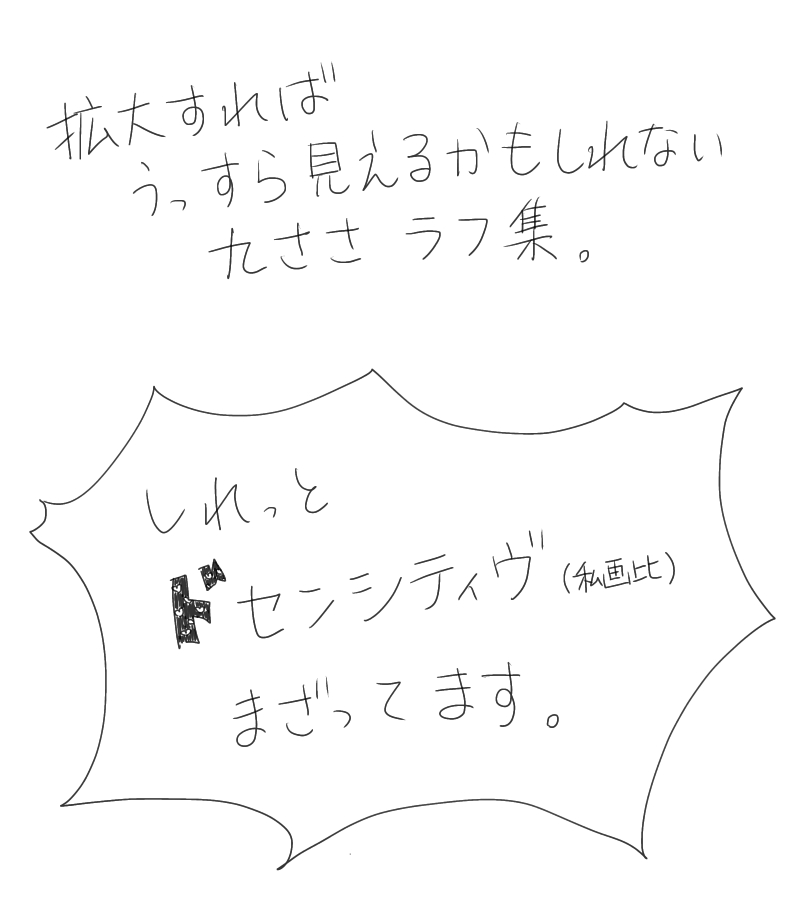 拡大すれば
うっすら見えるかもしれない
九ささ ラフ集。
しれっと
ドセンシティヴ(私画比)
まざってます。